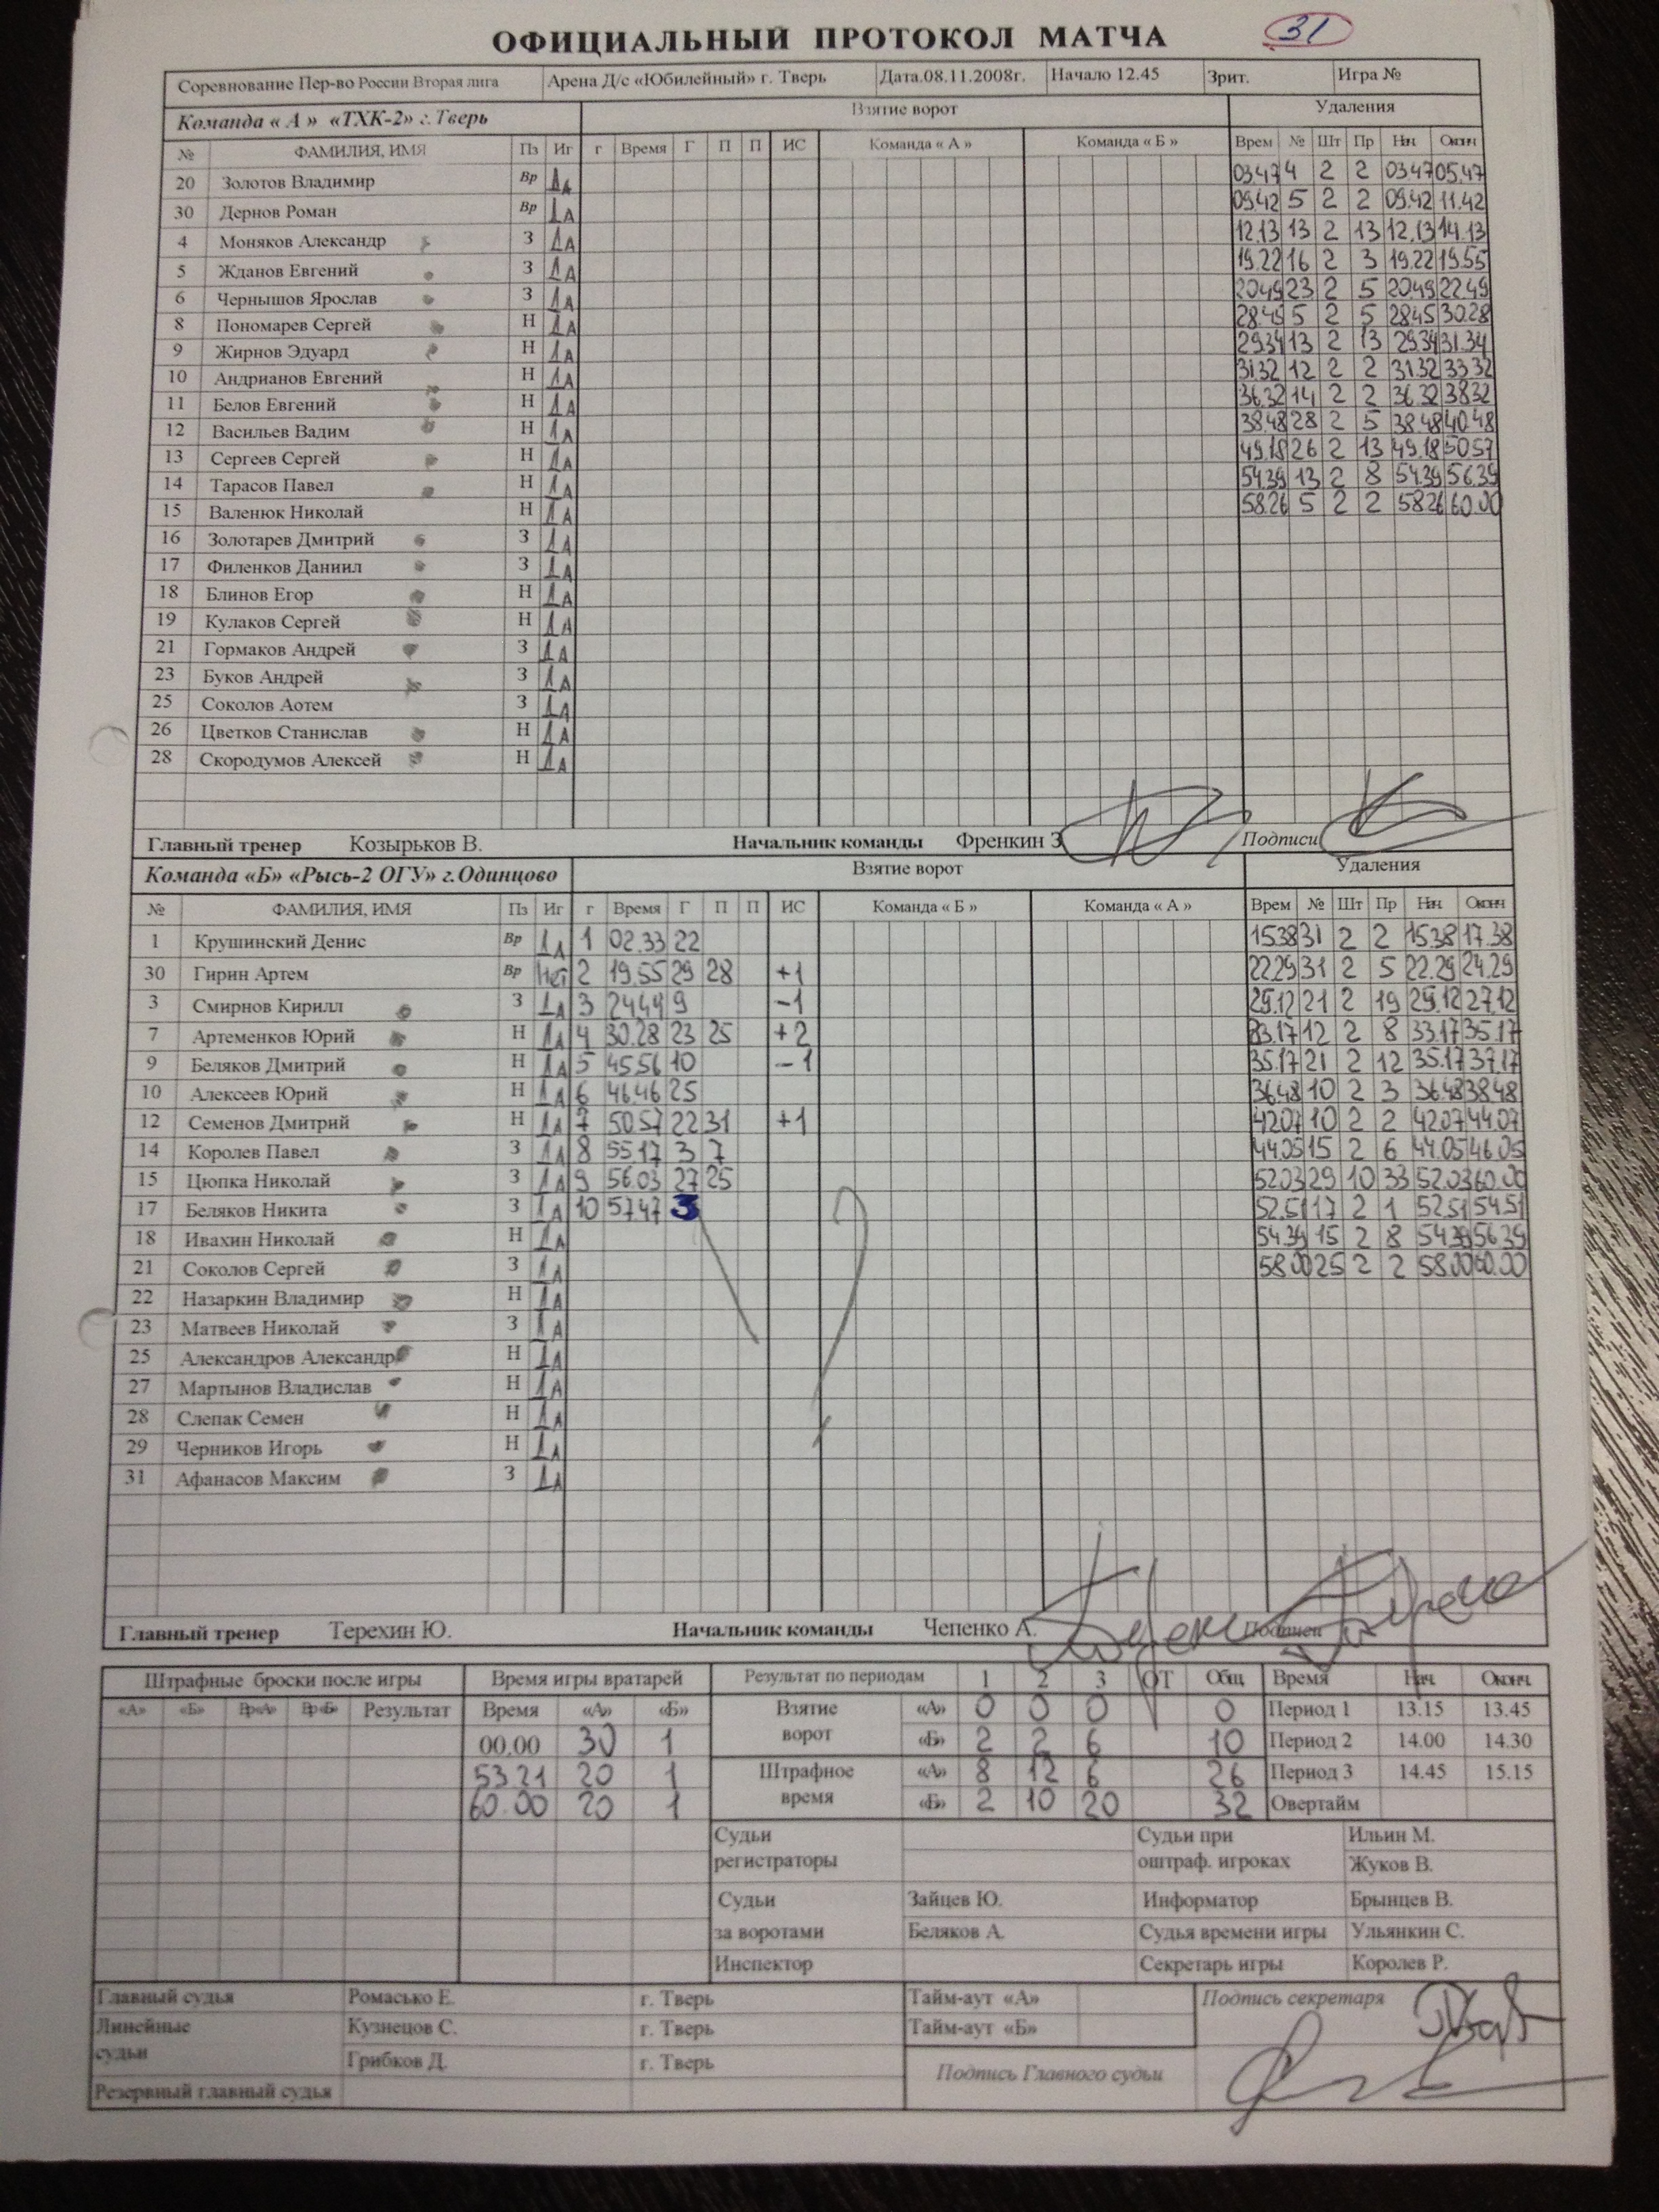 ОФИЦИАЛЬНЫЙ ПРОТОКОЛ МАТЧА 31
Соревнование Пер-во России Вторая лига Арена Д/с «Юбилейный» г. Тверь Дата.08.11.2008г. Начало 12.45 Зрит. Игра №
Команда « А » «ТХК-2» г.Тверь Взятие ворот Удаления
№ ФАМИЛИЯ, ИМЯ Пз Иг г Время Г П П ИС Команда « А » Команда « Б » Врем № Шт Пр Нач Оконч
20 Золотов Владимир Вр Да 03.47 4 2 2 03.47 05.47
30 Дернов Роман Вр Да 09.42 5 2 2 09.42 11.42
4 Моняков Александр З Да 12.13 13 2 13 12.13 14.13
5 Жданов Евгений З Да 19.22 16 2 3 19.22 19.55
6 Чернышов Ярослав З Да 20.49 23 2 5 20.49 22.49
8 Пономарев Сергей Н Да 28.45 5 2 5 28.45 30.28
9 Жирнов Эдуард Н Да 29.34 13 2 13 29.34 31.34
10 Андрианов Евгений Н Да 31.32 12 2 2 31.32 33.32
11 Белов Евгений Н Да 36.32 14 2 2 36.32 38.32
12 Васильев Вадим Н Да 38.48 28 2 5 38.48 40.48
13 Сергеев Сергей Н Да 49.18 26 2 13 49.18 50.57
14 Тарасов Павел Н Да 54.39 13 2 8 54.39 56.39
15 Валенюк Николай Н Да 58.26 5 2 2 58.26 60.00
16 Золотарев Дмитрий З Да
17 Филенков Даниил З Да
18 Блинов Егор Н Да
19 Кулаков Сергей Н Да
21 Гормаков Андрей З Да
23 Буков Андрей З Да
25 Соколов Аотем З Да
26 Цветков Станислав Н Да
28 Скородумов Алексей Н Да
Главный тренер Козырьков В. Начальник команды Френкин З Подписи
Команда «Б» «Рысь-2 ОГУ» г.Одинцово Взятие ворот Удаления
№ ФАМИЛИЯ, ИМЯ Пз Иг г Время Г П П ИС Команда « Б » Команда « А » Врем № Шт Пр Нач Оконч
1 Крушинский Денис Вр Да 1 02.33 22 15.38 31 2 2 15.38 17.38
30 Гирин Артем Вр Нет 2 19.55 29 28 +1 22.29 31 2 5 22.29 24.29
3 Смирнов Кирилл З Да 3 24.49 9 -1 25.12 21 2 19 25.12 27.12
7 Артеменков Юрий Н Да 4 30.28 23 25 +2 33.17 12 2 8 33.17 35.17
9 Беляков Дмитрий Н Да 5 45.56 10 -1 35.17 21 2 12 35.17 37.17
10 Алексеев Юрий Н Да 6 46.46 25 36.48 10 2 3 36.48 38.48
12 Семенов Дмитрий Н Да 7 50.57 22 31 +1 42.07 10 2 2 42.07 44.07
14 Королев Павел З Да 8 55.17 3 7 44.05 15 2 6 44.05 46.05
15 Цюпка Николай З Да 9 56.03 27 25 52.03 29 10 33 52.03 60.00
17 Беляков Никита З Да 10 57.47 3 52.51 17 2 1 52.51 54.51
18 Ивахин Николай Н Да 54.39 15 2 8 54.39 56.39
21 Соколов Сергей З Да 58.00 25 2 2 58.00 60.00
22 Назаркин Владимир Н Да
23 Матвеев Николай З Да
25 Александров Александр Н Да
27 Мартынов Владислав Н Да
28 Слепак Семен Н Да
29 Черников Игорь Н Да
31 Афанасов Максим З Да
Главный тренер Терехин Ю. Начальник команды Чепенко А. Подписи
Штрафные броски после игры Время игры вратарей Результат по периодам 1 2 3 ОТ Общ Время Нач. Оконч.
«А» «Б» Вр«А» Вр«Б» Результат Время «А» «Б» Взятие ворот «А» 0 0 0 0 Период 1 13.15 13.45
00.00 30 1 «Б» 2 2 6 10 Период 2 14.00 14.30
53.21 20 1 Штрафное время «А» 8 12 6 26 Период 3 14.45 15.15
60.00 20 1 «Б» 2 10 20 32 Овертайм
Судьи регистраторы Судьи при оштраф. игроках Ильин М.
Жуков В.
Судьи Зайцев Ю. Информатор Брынцев В.
за воротами Беляков А. Судья времени игры Ульянкин С.
Инспектор Секретарь игры Королев Р.
Главный судья Ромасько Е. г. Тверь Тайм-аут «А» Подпись секретаря
Линейные судьи Кузнецов С. г. Тверь Тайм-аут «Б»
Грибков Д. г. Тверь Подпись Главного судьи
Резервный главный судья